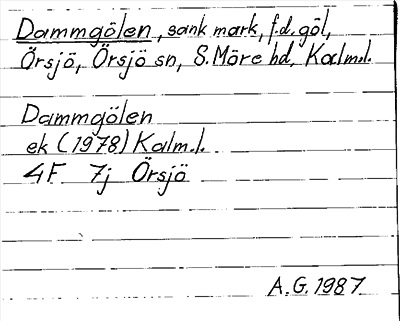 Dammgölen, sank mark, f.d. göl,
Örsjö, Örsjö sn, S. Möre hd, Kalm.l.
Dammgölen
ek (1978) Kalm.l.
4F 7j Örsjö
A.G. 1987